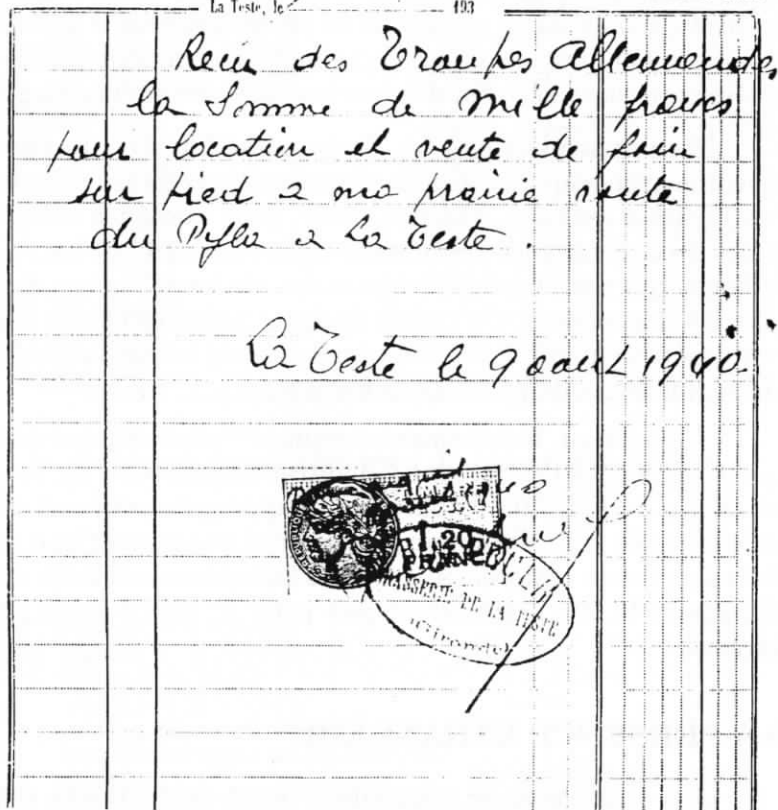 La Teste, le 193
Recu des Troupes Allemandes
la Somme de Mille francs
pour location et vente de foin
sur pied a ma prairie route
du Pyla a La Teste.
La Teste le 9 aout 1940.
1,20
BRASSERIE DE LA TESTE
(Gironde)